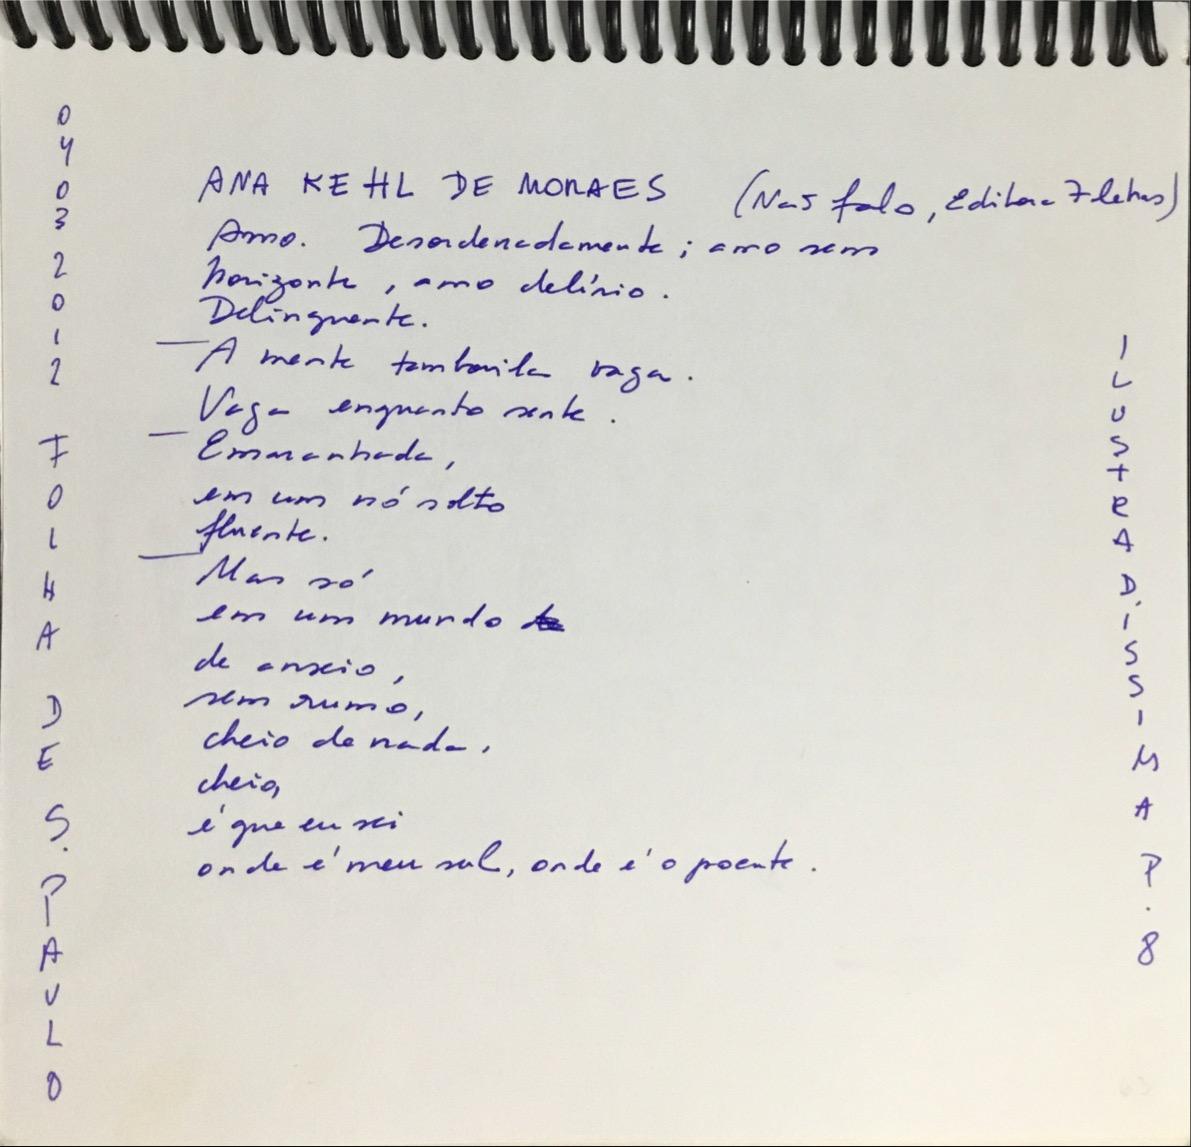 04032012 FOLHA DE S. PAULO
ANA KEHL DE MORAES (Nas falo, Editora 7 letras)
Amo. Desordenadamente; amo sem
horizonte, amo delírio.
Delinquente.
A mente tamborila vaga.
Vaga enquanto sente.
Emaranhada,
em um nó solto
fluente.
Mas só
em um mundo
de anseio,
sem rumo,
cheio de nada,
cheio,
é que eu sei
onde é meu sul, onde é o poente.
ILUSTRADÍSSIMA P. 8